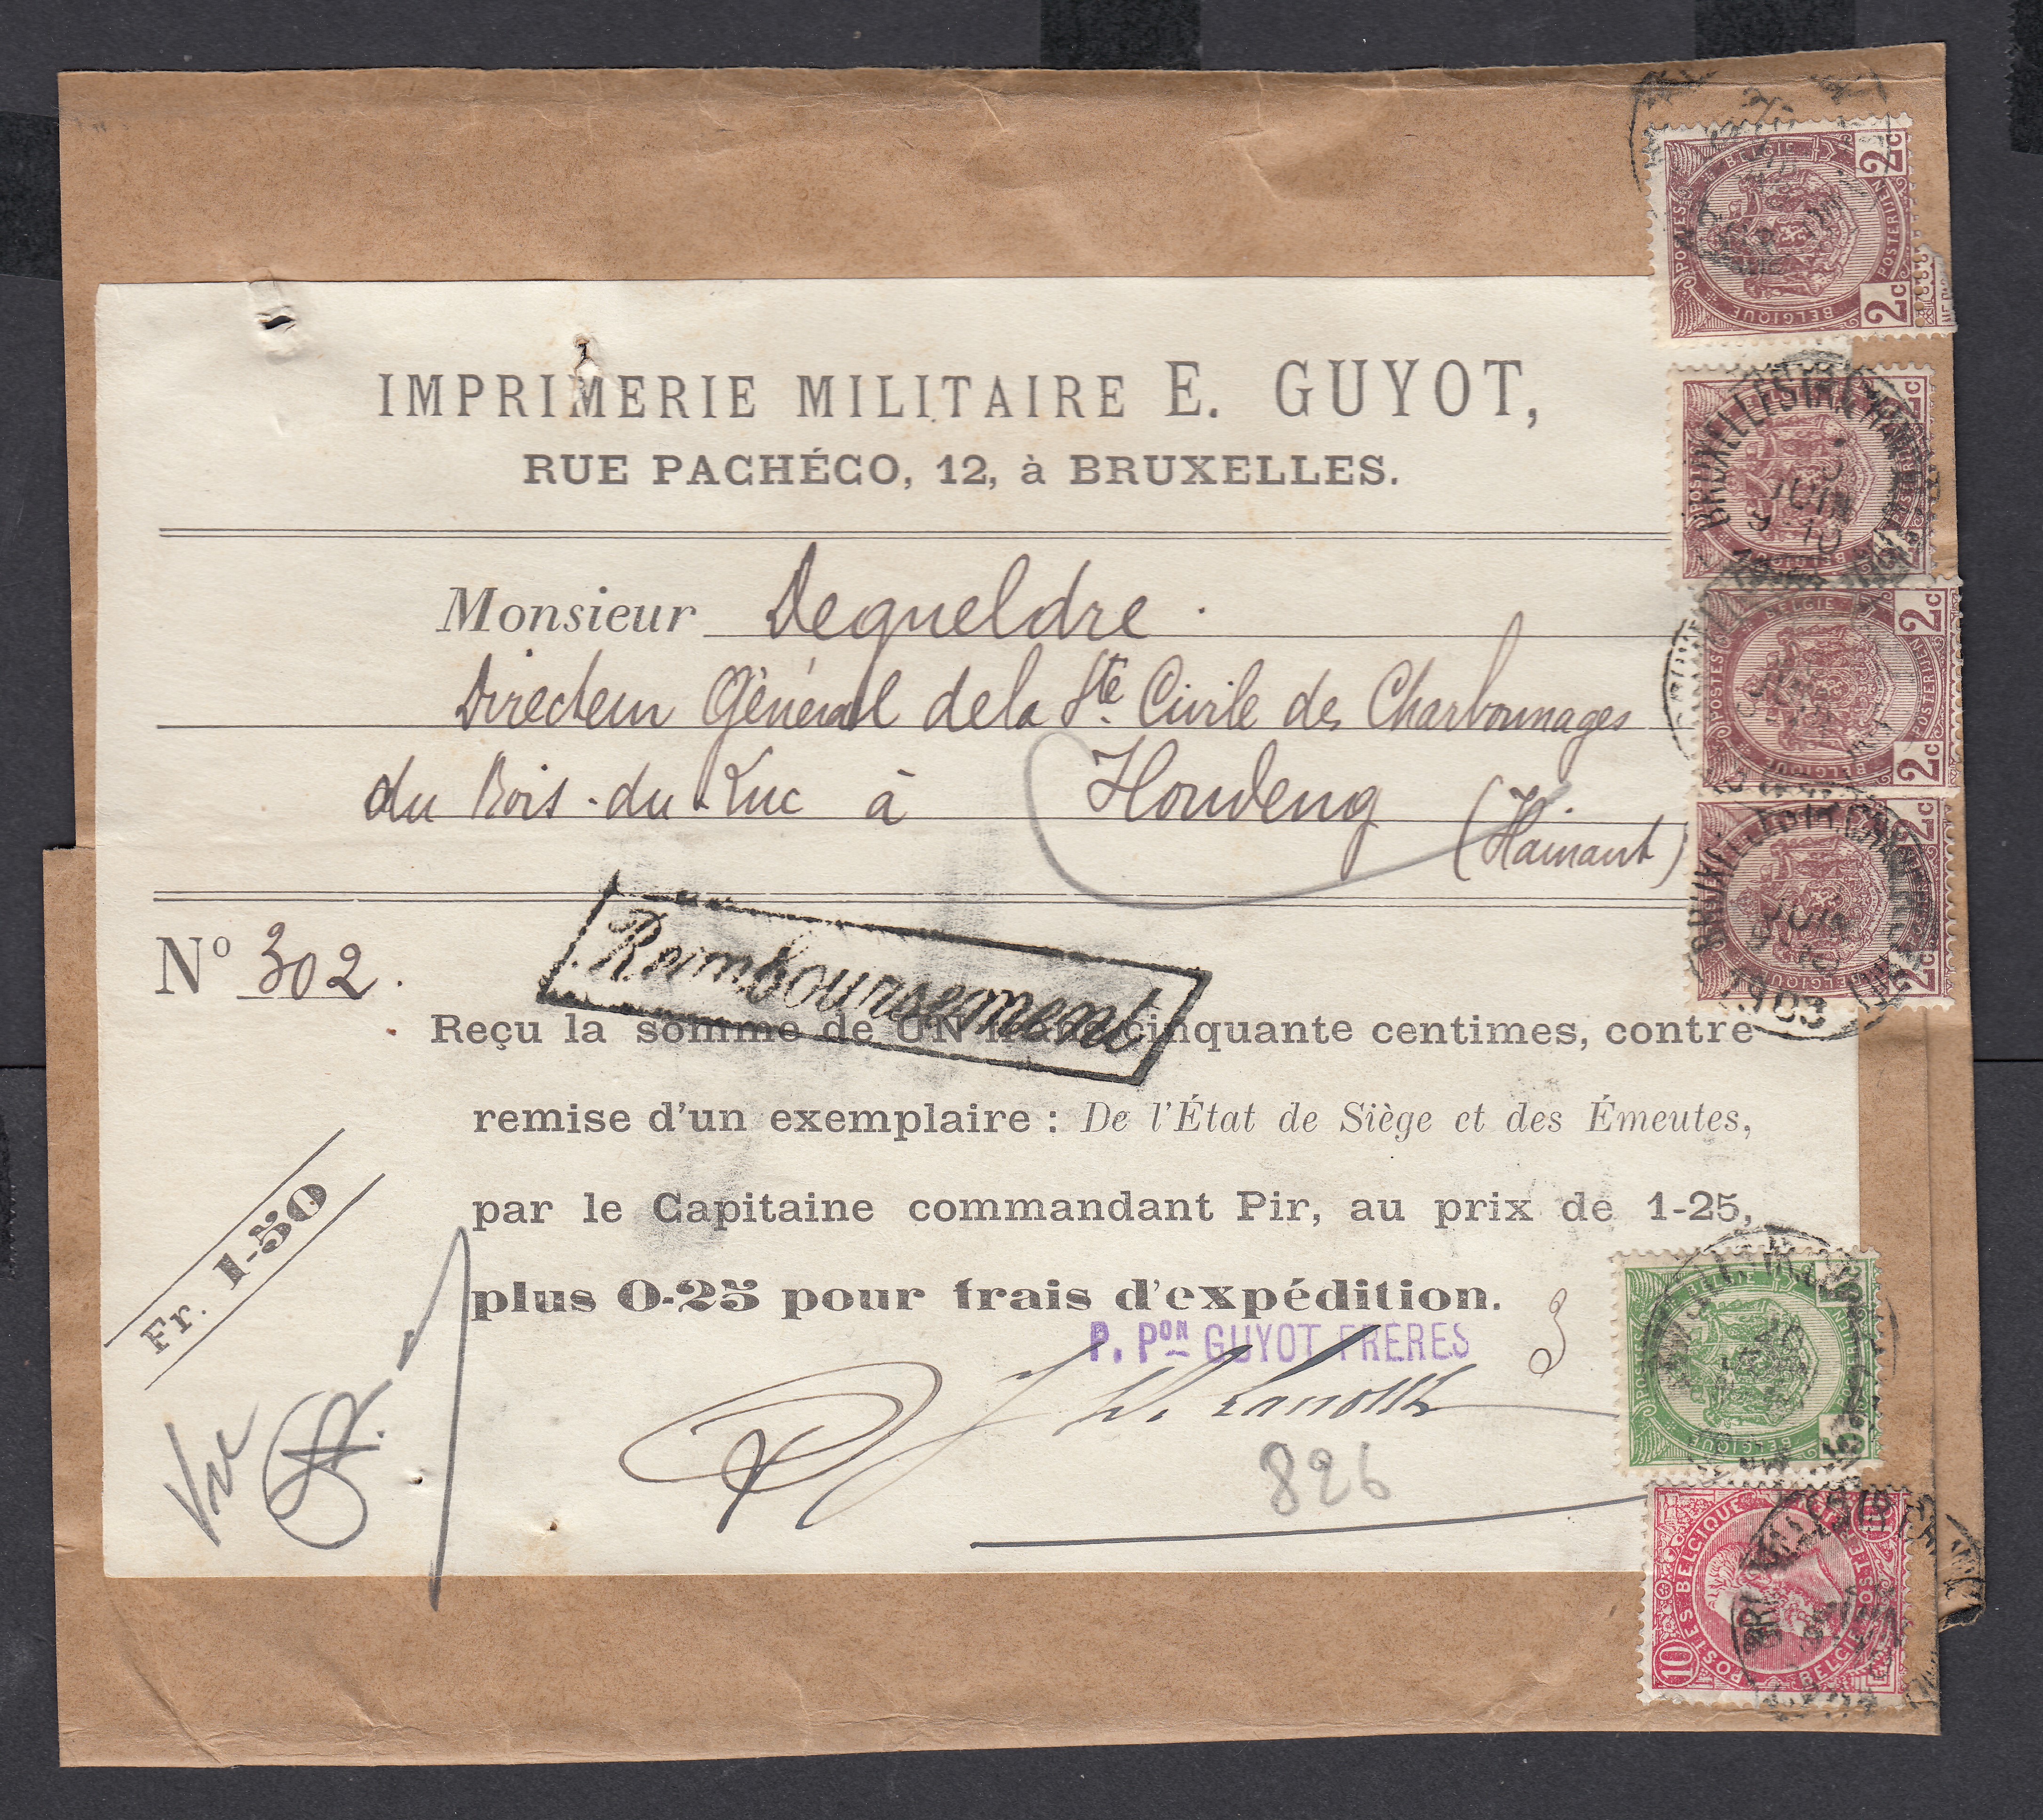 IMPRIMERIE MILITAIRE E. GUYOT,
RUE PACHÉCO, 12, à BRUXELLES.
Monsieur Dequeldre.
Directeur Général de la Sté Civile des Charbonnages
du Bois-du-Luc à Houdeng (Hainaut)
Nº 302.
Remboursement
Reçu la somme de UN cinquante centimes, contre
remise d'un exemplaire : De l'État de Siège et des Émeutes,
par le Capitaine commandant Pir, au prix de 1-25,
plus 0-25 pour frais d'expédition.
Fr. 1-50
P. Pon GUYOT FRERES
3
Vu
826
2c BELGIE POSTERIJEN 2c BELGIQUE POSTES
BRUXELLES
JUIN
2c BELGIE POSTERIJEN 2c BELGIQUE POSTES
BRUXELLES
JUIN
1903
BELGIQUE
10 POSTES BELGIQUE
BELGIE